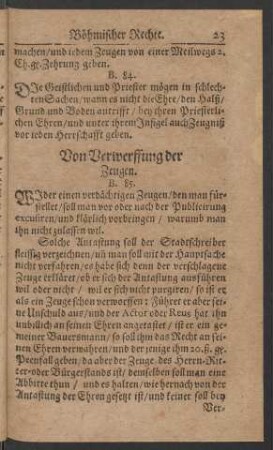 Böhmischer Rechte. 23
machen/und iedem Zeugen von einer Meilwegs 2.
Ch. gr. Zehrung geben.
B. 84.
Die Geistlichen und Priester mögen in schlech-
ten Sachen/wann es nicht die Ehre/den Halß/
Grund und Boden antrifft/bey ihren Priesterli-
chen Ehren/und unter ihrem Insigel auch Zeugniß
vor ieden Herrschafft geben.
Von Verwerffung der
Zeugen.
B. 85.
WIder einen verdächtigen Zeugen/den man für-
stellet/soll man vor oder nach der Publicirung
excipiren/und klärlich vorbringen/warumb man
ihn nicht zulassen wil.
Solche Antastung soll der Stadtschreiber
fleissig verzeichnen/uñ man soll mit der Hauptsache
nicht verfahren/es habe sich denn der verschlagene
Zeuge erkläret/ob er sich der Antastung ausführen
wil oder nicht/wil er sich nicht purgiren/so ist er
als ein Zeuge schon verworffen: Führet er aber sei-
ne Unschuld aus/und der Actor oder Reus hat ihn
unbillich an seinen Ehren angetastet/ist er ein ge-
meiner Bauersmann/so soll ihm das Recht an sei-
nen Ehren verwahren/und der jenige ihm 20. ß. gr.
Peenfall geben/da aber der Zeuge des Herrn-Rit-
ter-oder Bürgerstands ist/demselben soll man eine
Abbitte thun/und es halten/wie hernach von der
Antastung der Ehren gesetzt ist/und keiner soll bey
Ver-